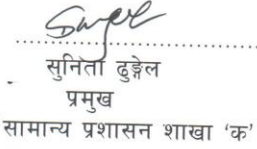 सुनिता ढुङ्गेल
प्रमुख
सामान्य प्रशासन शाखा 'क'